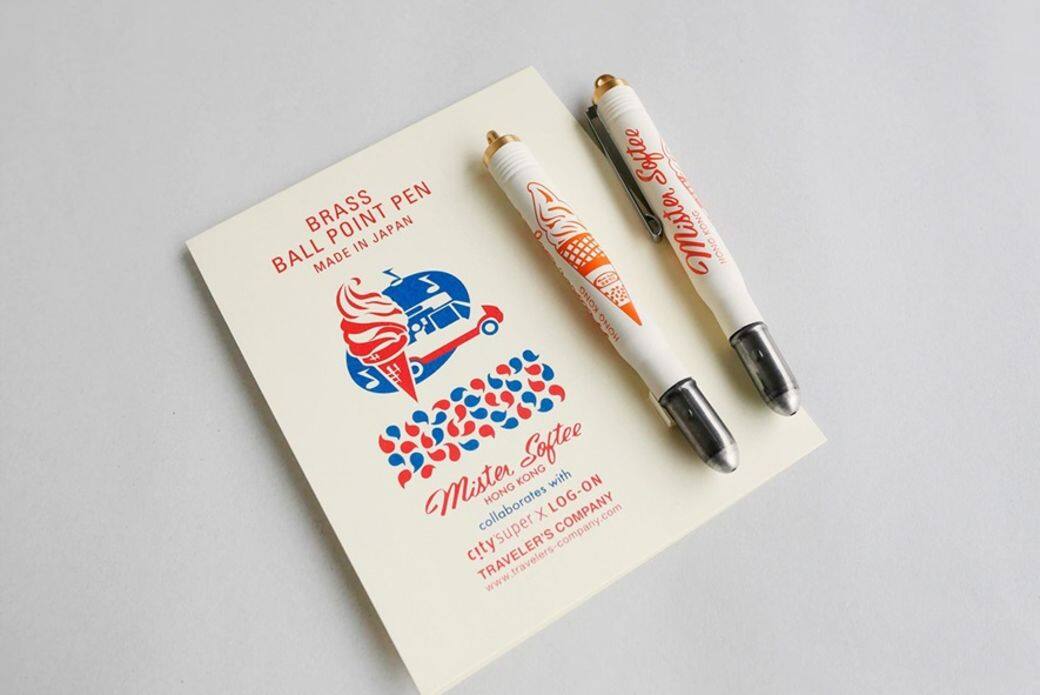 BRASS
BALL POINT PEN
MADE IN JAPAN
Mister Softee
HONG KONG
collaborates with
city'super X LOG-ON
TRAVELER'S COMPANY
www.travelers-company.com
HONG KONG
Mister Softee
HONG KONG